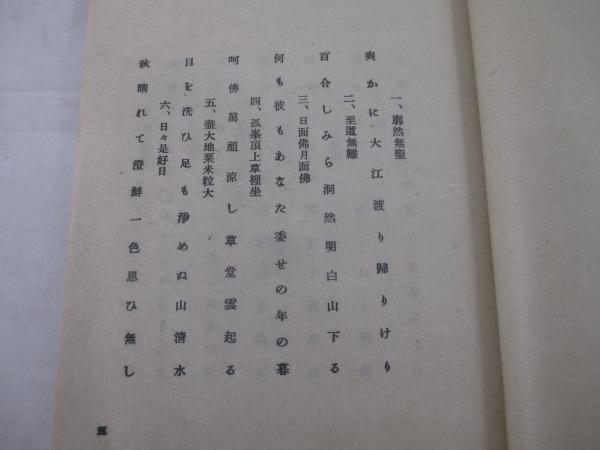 一、廓然無聖
爽かに大江渡り歸りけり
二、至道無難
百合しみら洞然明白山下る
三、日面佛月面佛
何も彼もあなた委せの年の暮
四、孤峯頂上草裡坐
呵佛罵祖涼し草堂雲起る
五、盡大地粟米粒大
目を洗ひ足も淨めぬ山清水
六、日々是好日
秋晴れて澄鮮一色思ひ無し
五